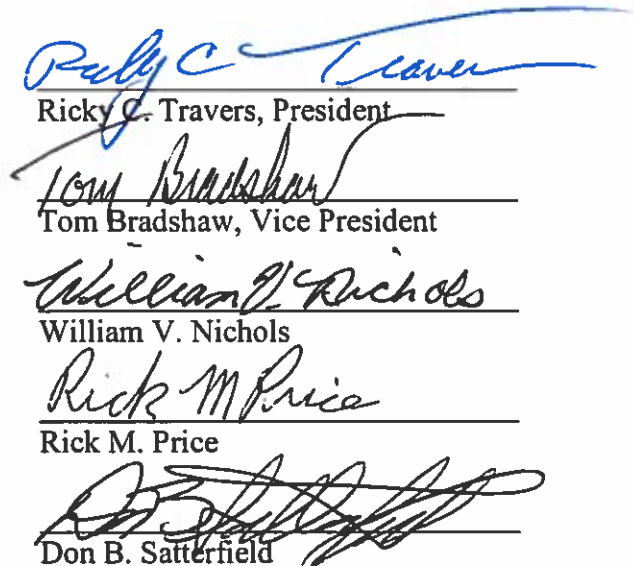 Ricky C Travers
Ricky C. Travers, President
Tom Bradshaw
Tom Bradshaw, Vice President
William V. Nichols
William V. Nichols
Rick M Price
Rick M. Price
Don B. Satterfield